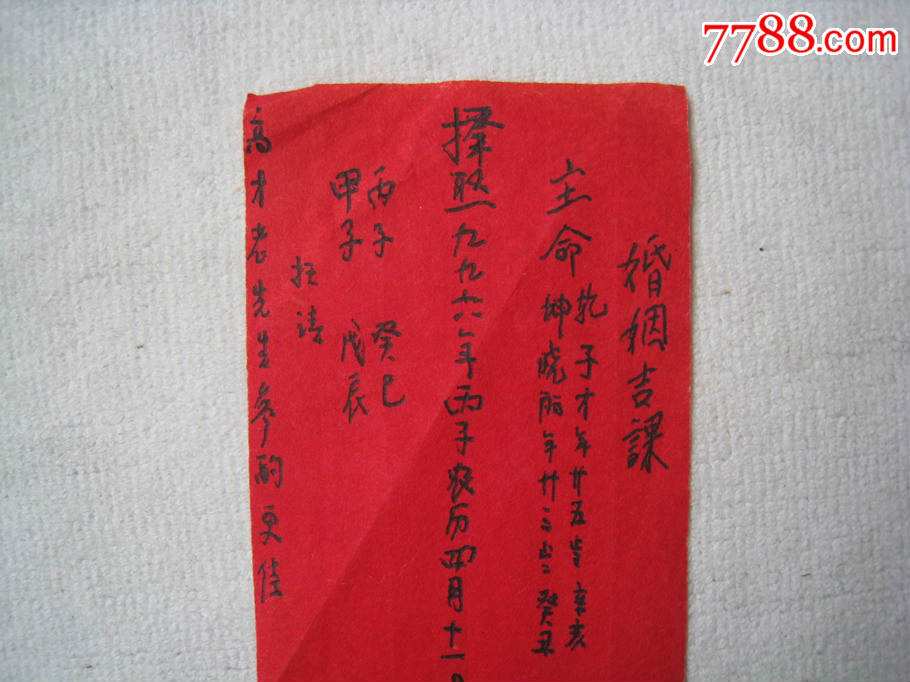 7788.com
婚姻吉課
主命
乾子才年廿五岁辛亥
坤晓丽年廿三岁癸丑
择
一九九六年丙子农历四月十一
丙子 癸巳
甲子 戊辰
抂请
高才老先生参酌更佳